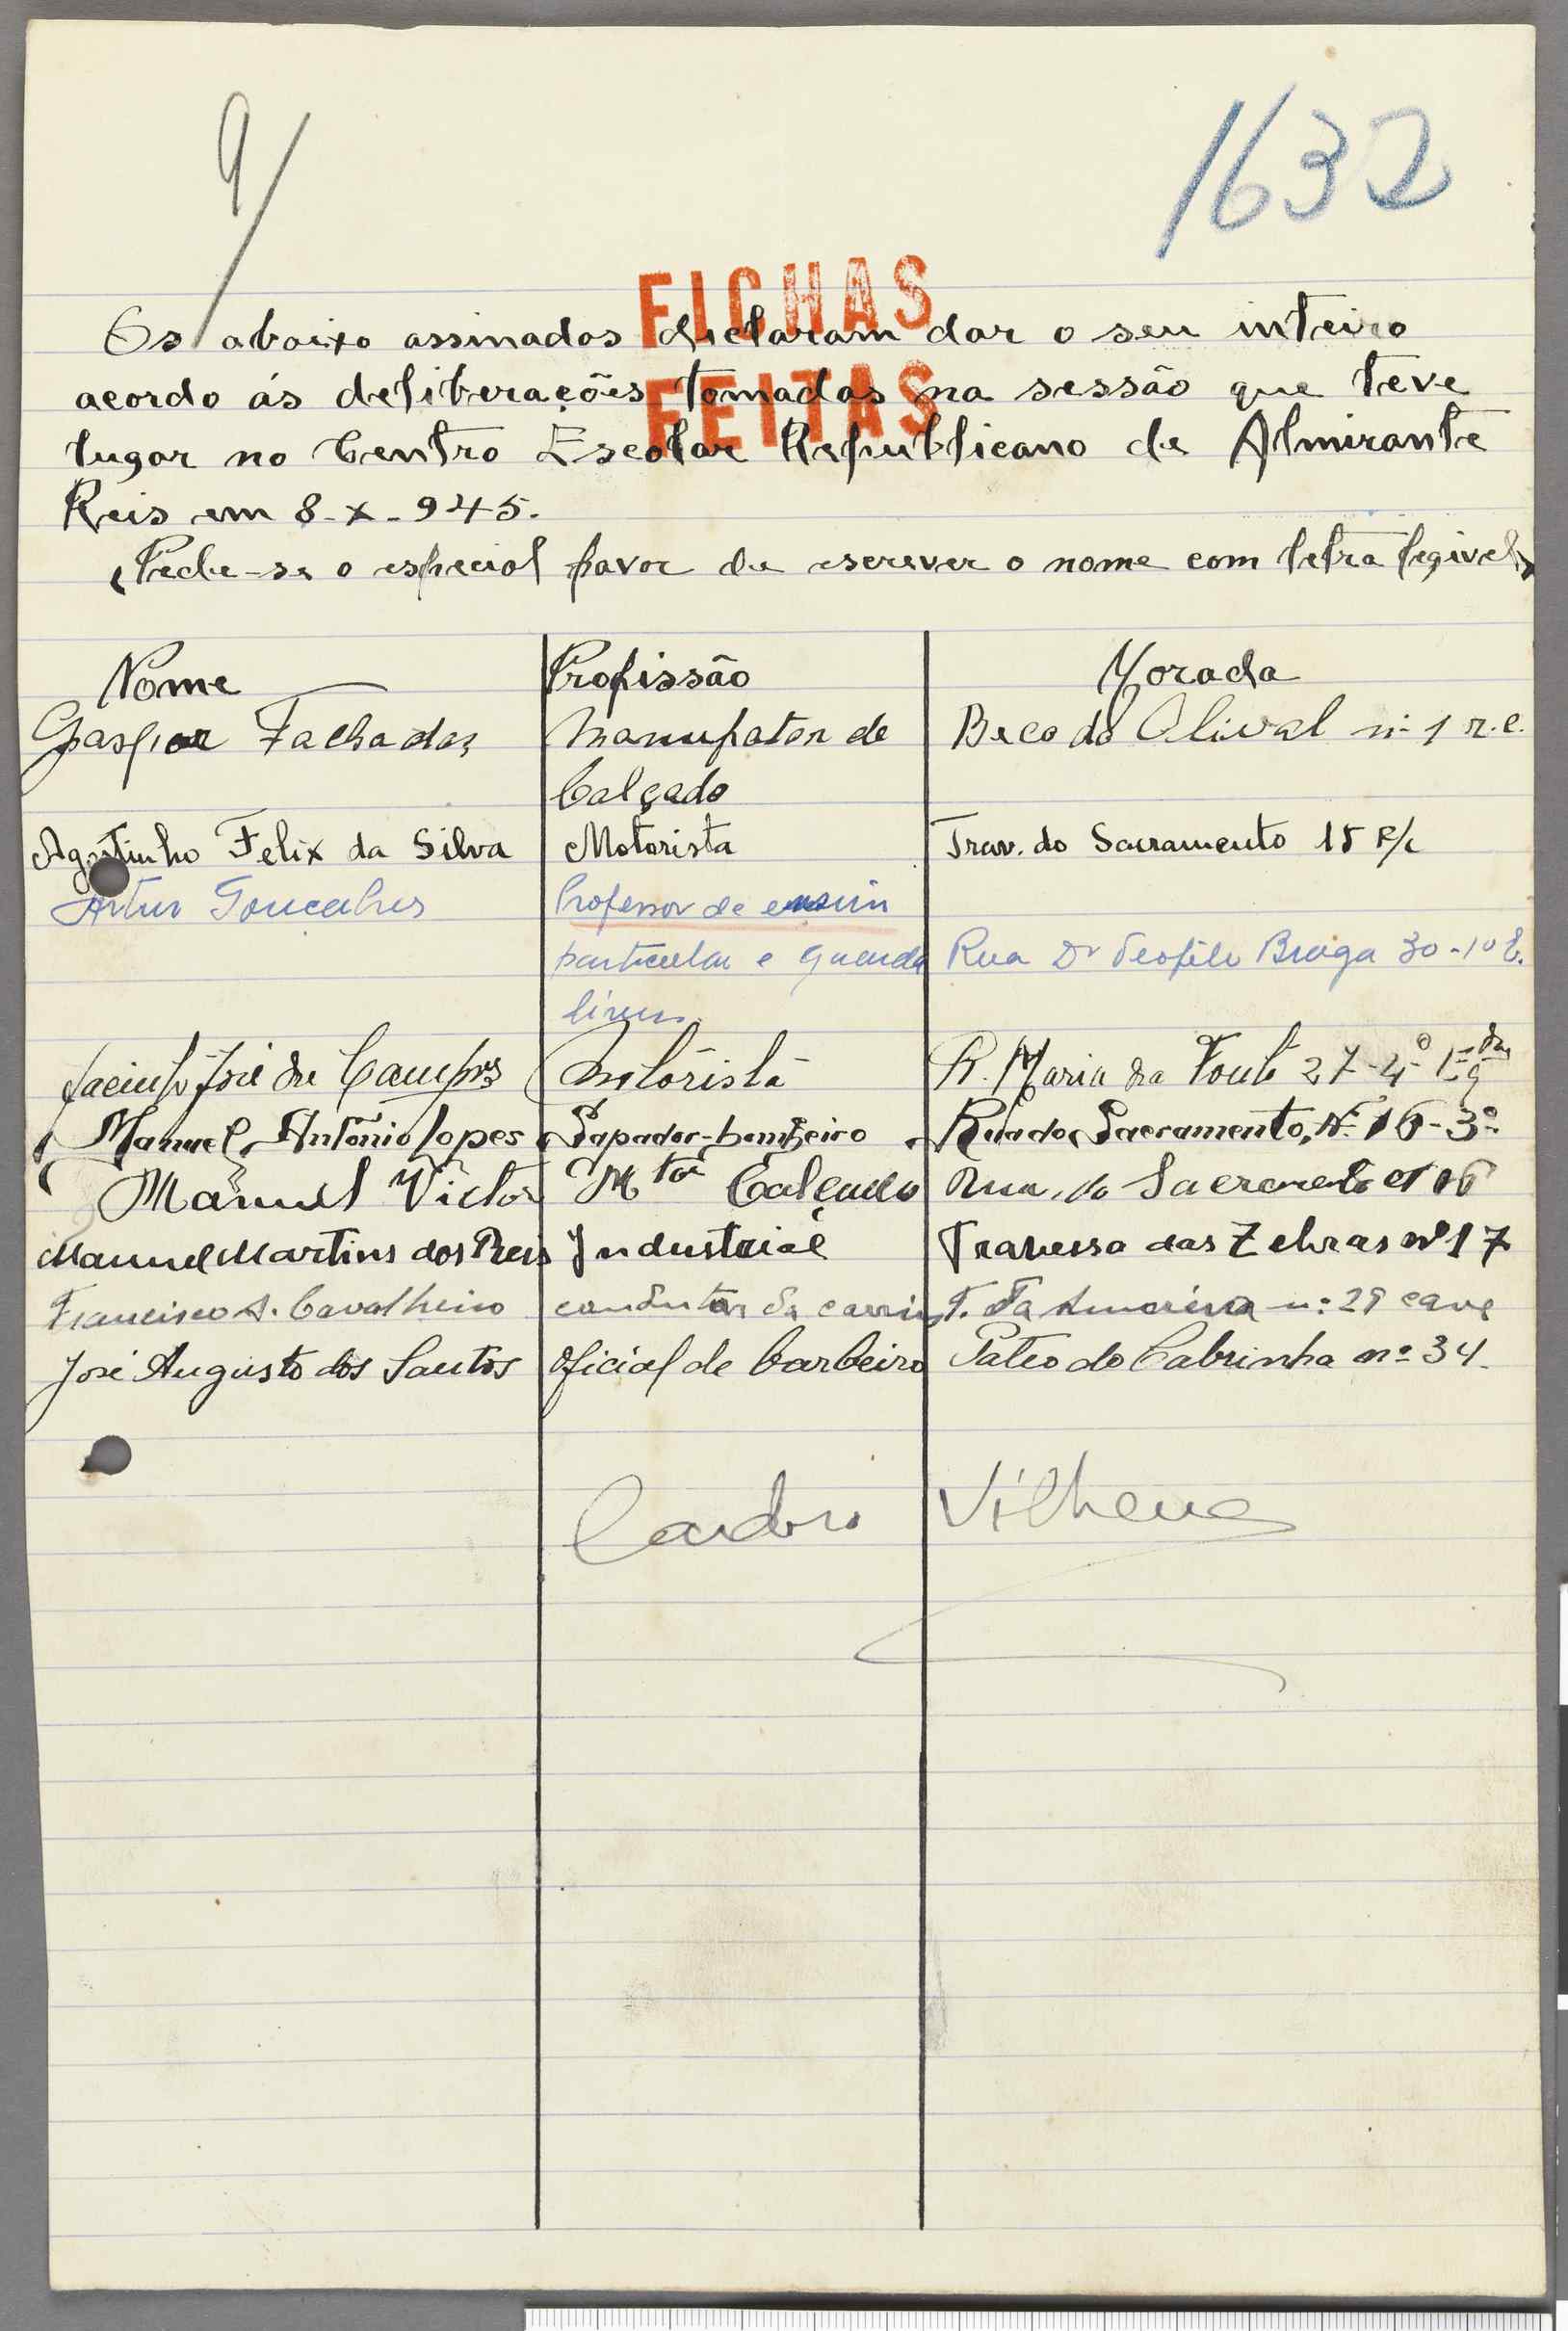 9/
1632
FICHAS
FEITAS
Os abaixo assinados declaram dar o seu inteiro
acordo ás deliberações tomadas na sessão que teve
lugar no Centro Escolar Republicano de Almirante
Reis em 8-X-945.
(Pede-se o especial favor de escrever o nome com letra legivel)
Nome Profissão Morada
Gaspar Fachadas Manufator de Beco do Olival nº 1 r.c.
Calçado
Agostinho Felix da Silva Motorista Trav. do Sacramento 15 R/c
Artur Gonçalves Professor de ensino
particular e guarda Rua Dr Teofilo Braga 30-1º E.
livros
Jacinto José de Campos Motorista R. Maria da Fonte 27-4º Esq
Manuel Antônio Lopes Sapador-bombeiro Rua do Sacramento, Nº 16-3º
Manuel Victor Mtor Calçado Rua do Sacramento 16
Manuel Martins dos Reis Industrial Travessa das Zebras nº 17
Francisco A. Cavalheiro condutor da carris T. da nº 29 cave
José Augusto dos Santos Oficial de barbeiro Pateo do Cabrinha nº 34.
Cardoso Vilhena